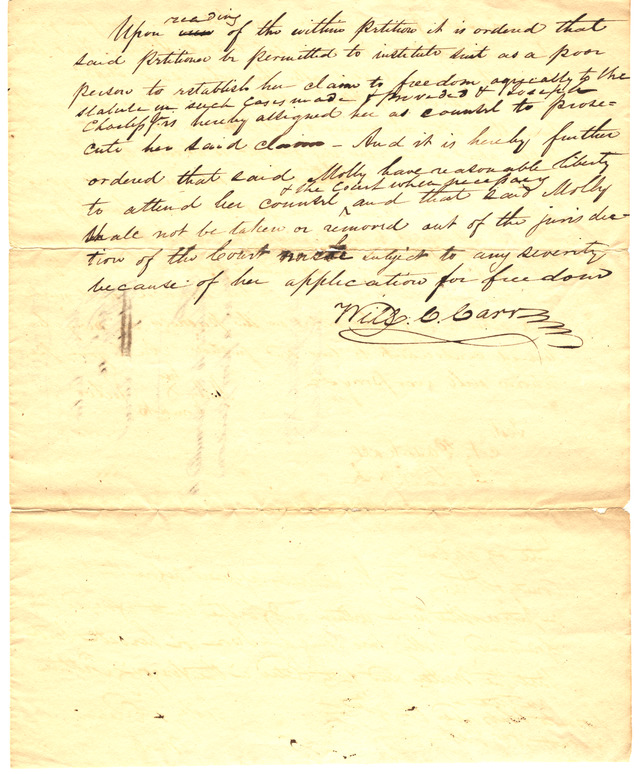 reading
Upon of the within Petition it is ordered that
said Petitioner be permitted to institute suit as a poor
person to establish her claim to freedom agreeably to the
statute in such cases made & provided & Joseph
is hereby assigned her as counsel to prose-
cute her said claim - And it is hereby further
ordered that said Molly have reasonable liberty
& the Court when necessary
to attend her counsel ^ and that said Molly
shall not be taken or removed out of the jurisdic-
tion of the Court subject to any severity
because of her application for freedom
Will. C. Carr